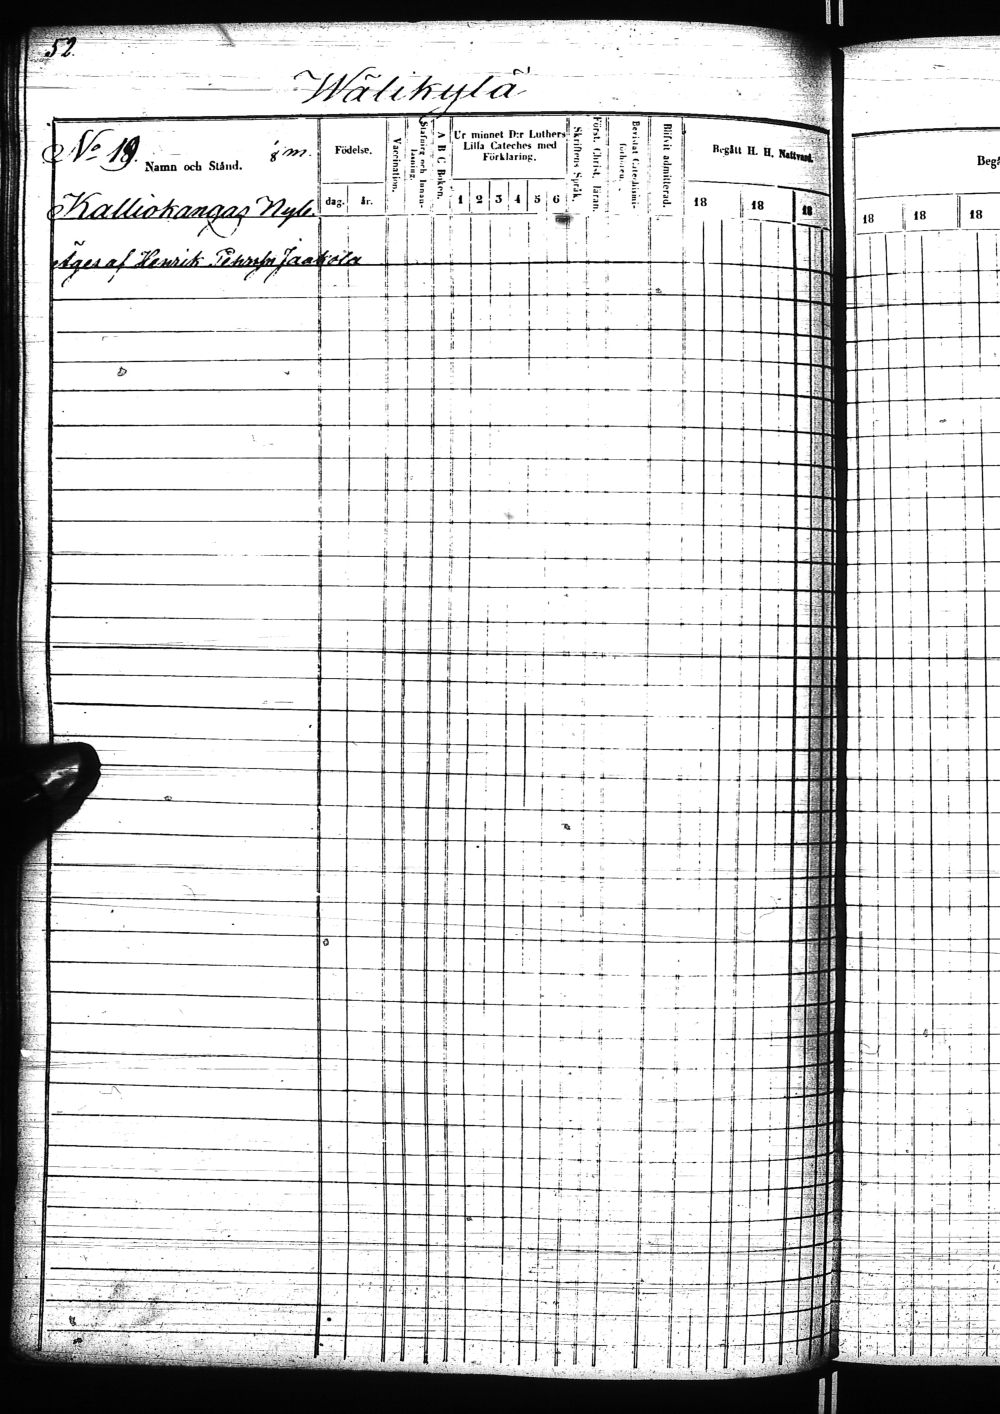 52.
Wälikylä
No 19. 1/8 m.
Namn och Stånd.
Födelse.
dag. år.
Vaccination.
Stafning och Innanläsning.
A B C Boken.
Ur minnet D:r Luthers Lilla Cateches med Förklaring.
1 2 3 4 5 6
Skriftens Språk.
Först. Christ. läran.
Bevistat Catechismiförhören.
Blifvit admitterad.
Begått H. H. Nattvard.
18 18 18
Kalliokangas Nyb.
Äges af Henrik Pehrsn Jaakola
Begå
18 18 18